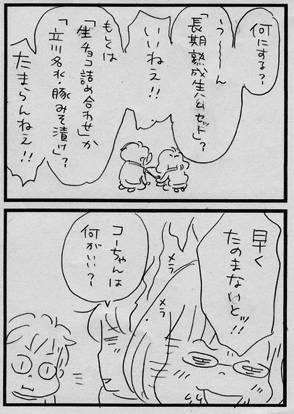 何にする？
う〜〜ん
「長期熟成生ハムセット」？
いいねえ！！
もしくは
「生チョコ詰め合わせ」か
「立川名水・豚みそ漬け」？
たまらんねえ！！
早く
たのまないとッ！！
メラ
メラ
コーちゃんは
何がいい？